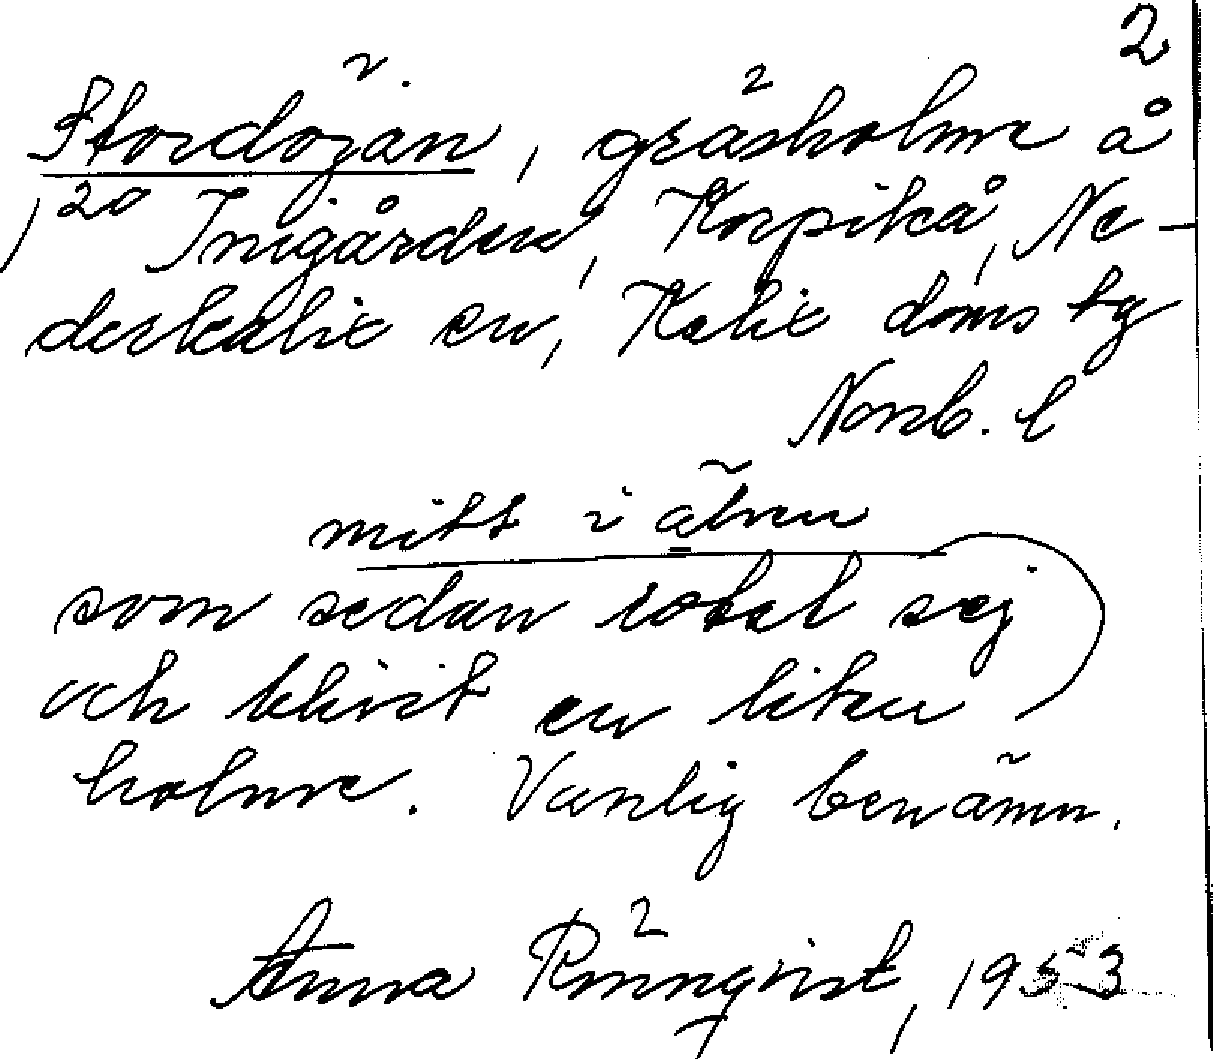 2
Stordöjan, gräsholme å
1/20 Inigården, Korpikå, Ne-
derkalix sn, Kalix doms tg
Norrb. l
mitt i älven
som sedan rotat sej
och blivit en liten
holme. Vanlig benämn.
Anna Rönnqvist, 1953